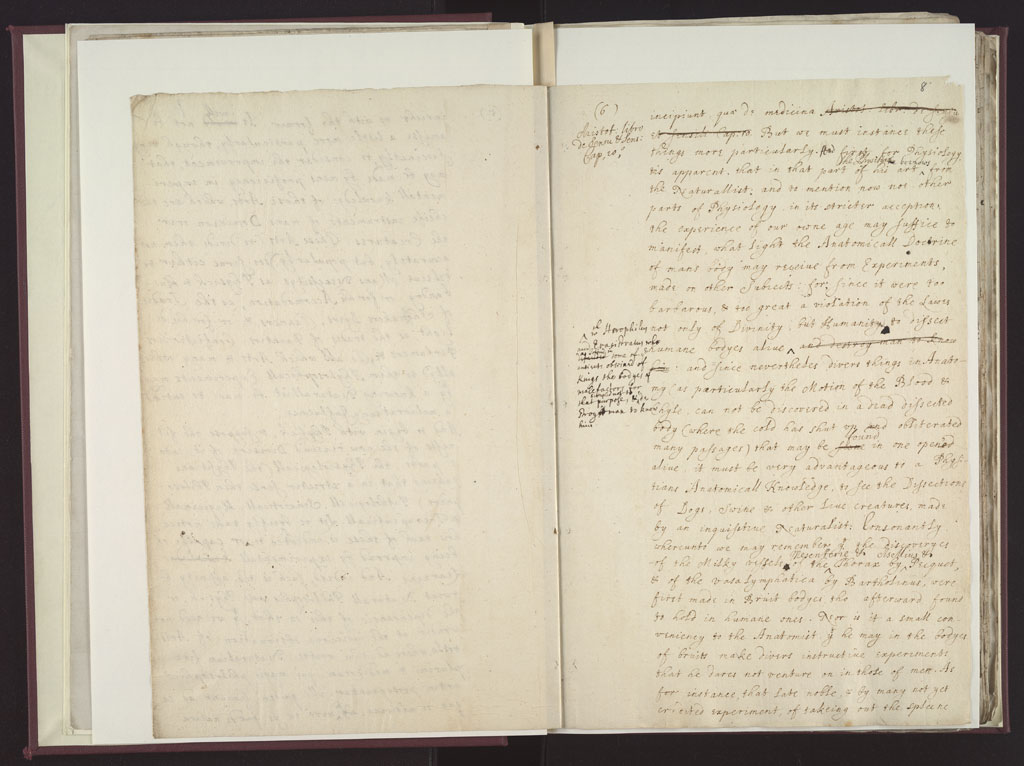 8
(6)
Aristot. libro
de Sensu & Sens:
Cap. 10.
incipiunt, quæ de medicina Aristot. libro de
et sensili Cap: 10. But we must instance these
things more particularly. And first for Physiology,
tis apparent, that in that part of his art, The Physitian borrows from
the Naturallist: and to mention now not other
parts of Physiology in its stricter acception,
the experience of our owne age may suffice to
manifest, what light the Anatomicall Doctrine
of mans body may receive from Experiments,
made on other Subjects: for, since it were too
barbarous, & too great a violation of the Laws
not only of Divinity, but Humanity, to dissect
humane bodyes alive, and destroy man to know
him: and since nevertheles divers things in Anato-
my (as particularly the Motion of the Blood &
Chyle, can not be discovered in a dead dissected
body (where the cold has shut up and obliterated
many passages) that may be found in one opened
alive, it must be very advantageous to a Physi-
tians Anatomicall Knowledge, to see the Dissections
of Dogs, Swine & other live creatures, made
by an inquisitive Naturalist: Consonantly
whereunto we may remember yt the discoverys
of the Milky vessels of the Mesenterie by Asellius &
of the Thorax by Pecquet,
& of the vasa Lymphatica by Bartholinus, were
first made in Bruit bodyes tho afterward found
to hold in humane ones. Nor is it a small con-
veniency to the Anatomist, yt he may in the bodyes
of bruits make divers instructive experiments
that he dares not venture on in those of men. As
for instance, that late noble, & by many not yet
credited experiment, of takeing out the spleene
Herophilus
and Erasistratus who
some of
antients obtained of
Kings the bodyes of
malefactors for
that purpose, &
man to know
him